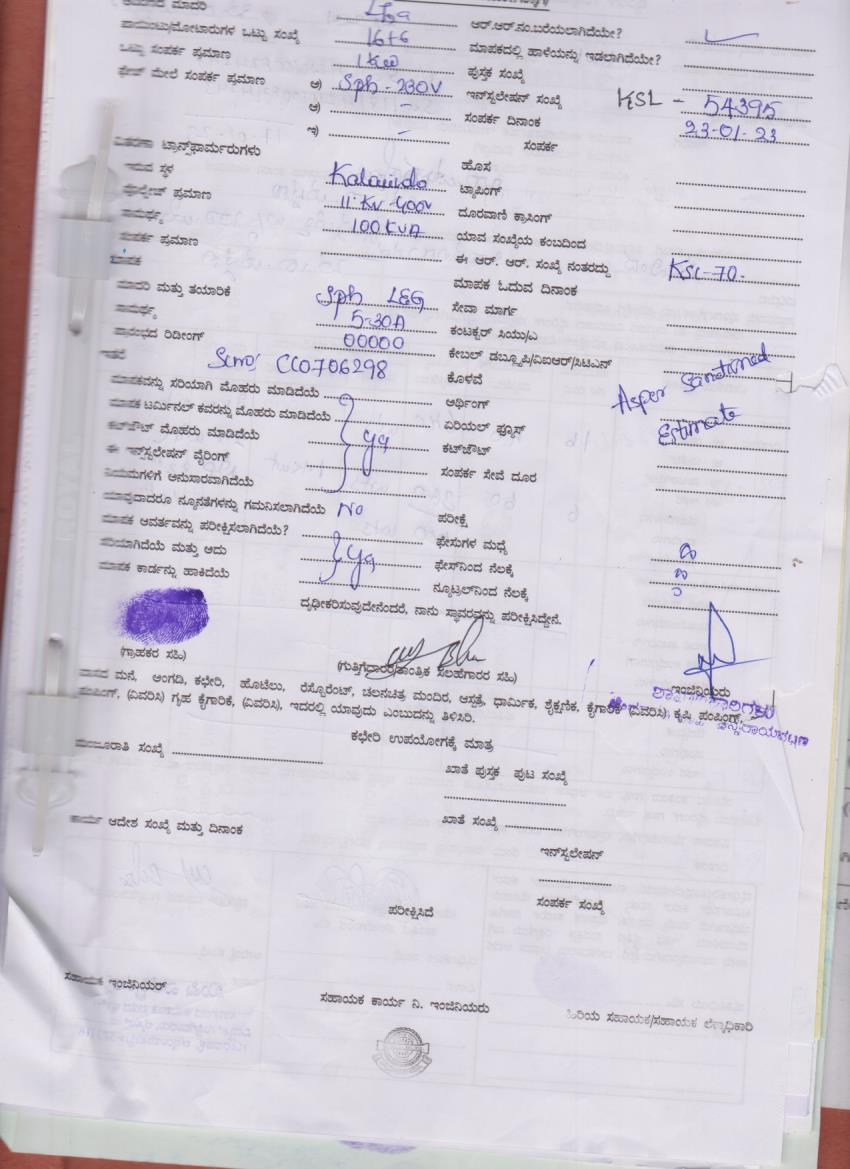 ಮಾದರಿ
ಆರ್.ಆರ್.ನಂ.ಬರೆಯಲಾಗಿದೆಯೇ?
ಪಾಯಿಂಟು/ಮೋಟಾರುಗಳ ಒಟ್ಟು ಸಂಖ್ಯೆ 16+6 ಮಾಪಕದಲ್ಲಿ ಹಾಳೆಯನ್ನು ಇಡಲಾಗಿದೆಯೇ?
ಒಟ್ಟು ಸಂಪರ್ಕ ಪ್ರಮಾಣ 1KW ಪುಸ್ತಕ ಸಂಖ್ಯೆ
ಫೇಜ್ ಮೇಲೆ ಸಂಪರ್ಕ ಪ್ರಮಾಣ ಅ) Sph - 230V ಇನ್‌ಸ್ಟಲೇಷನ್ ಸಂಖ್ಯೆ KSL - 54395
ಆ) - ಸಂಪರ್ಕ ದಿನಾಂಕ 23-01-23
ಇ) - ಸಂಪರ್ಕ
ವಿತರಣಾ ಟ್ರಾನ್ಸ್‌ಫಾರ್ಮರುಗಳು ಹೊಸ
ಇರುವ ಸ್ಥಳ ಟ್ಯಾಪಿಂಗ್
ವೋಲ್ಟೇಜ್ ಪ್ರಮಾಣ 11 KV-400V ದೂರವಾಣಿ ಕ್ರಾಸಿಂಗ್
ಸಾಮರ್ಥ್ಯ 100KVA ಯಾವ ಸಂಖ್ಯೆಯ ಕಂಬದಿಂದ
ಸಂಪರ್ಕ ಪ್ರಮಾಣ ಈ ಆರ್. ಆರ್. ಸಂಖ್ಯೆ ನಂತರದ್ದು KSL-70.
ಮಾಪಕ ಮಾಪಕ ಓದುವ ದಿನಾಂಕ
ಮಾದರಿ ಮತ್ತು ತಯಾರಿಕೆ Sph L&G ಸೇವಾ ಮಾರ್ಗ
ಸಾಮರ್ಥ್ಯ 5-30A ಕಂಟಕ್ಟರ್ ಸಿಯು/ಎ
ಪ್ರಾರಂಭದ ರಿಡೀಂಗ್ 00000 ಕೇಬಲ್ ಡಬ್ಲ್ಯೂಪಿ/ಎಐಆರ್/ಸಿಟಿಎನ್
ಇತರೆ CC0706298 ಕೊಳವೆ
ಮಾಪಕವನ್ನು ಸರಿಯಾಗಿ ಮೊಹರು ಮಾಡಿದೆಯೆ ಆರ್ಥಿಂಗ್ Asper Sanctioned
ಮಾಪಕ ಟರ್ಮಿನಲ್ ಕವರನ್ನು ಮೊಹರು ಮಾಡಿದೆಯೆ ಏರಿಯಲ್ ಫ್ಯೂಸ್ Estimate
ಕಟ್‌ಔಟ್ ಮೊಹರು ಮಾಡಿದೆಯೆ ಕಟ್‌ಔಟ್
ಈ ಇನ್‌ಸ್ಟಲೇಷನ್ ವೈರಿಂಗ್ ಸಂಪರ್ಕ ಸೇವೆ ದೂರ
ನಿಯಮಗಳಿಗೆ ಅನುಸಾರವಾಗಿದೆಯೆ
ಯಾವುದಾದರೂ ನ್ಯೂನತೆಗಳನ್ನು ಗಮನಿಸಲಾಗಿದೆಯೆ NO ಪರೀಕ್ಷೆ
ಮಾಪಕ ಆವರ್ತವನ್ನು ಪರೀಕ್ಷಿಸಲಾಗಿದೆಯೆ? ಫೇಸುಗಳ ಮಧ್ಯೆ
ಸರಿಯಾಗಿದೆಯೆ ಮತ್ತು ಅದು ಫೇಸ್‌ನಿಂದ ನೆಲಕ್ಕೆ
ಮಾಪಕ ಕಾರ್ಡನ್ನು ಹಾಕಿದೆಯೆ ನ್ಯೂಟ್ರಲ್‌ನಿಂದ ನೆಲಕ್ಕೆ
ದೃಢೀಕರಿಸುವುದೇನೆಂದರೆ, ನಾನು ಸ್ಥಾವರವನ್ನು ಪರೀಕ್ಷಿಸಿದ್ದೇನೆ.
(ಗ್ರಾಹಕರ ಸಹಿ) (ಗುತ್ತಿಗೆದಾರರ/ತಾಂತ್ರಿಕ ಸಲಹೆಗಾರರ ಸಹಿ) ಇಂಜಿನಿಯರು
ವಾಸದ ಮನೆ, ಅಂಗಡಿ, ಕಛೇರಿ, ಹೊಟೆಲು, ರೆಸ್ಟೊರೆಂಟ್, ಚಲನಚಿತ್ರ ಮಂದಿರ, ಆಸ್ಪತ್ರೆ, ಧಾರ್ಮಿಕ, ಶೈಕ್ಷಣಿಕ, ಕೈಗಾರಿಕೆ (ವಿವರಿಸಿ) ಕೃಷಿ ಪಂಪಿಂಗ್,
ಪಂಪಿಂಗ್, (ವಿವರಿಸಿ) ಗೃಹ ಕೈಗಾರಿಕೆ, (ವಿವರಿಸಿ), ಇದರಲ್ಲಿ ಯಾವುದು ಎಂಬುದನ್ನು ತಿಳಿಸಿರಿ.
ಕಛೇರಿ ಉಪಯೋಗಕ್ಕೆ ಮಾತ್ರ
ಮಂಜೂರಾತಿ ಸಂಖ್ಯೆ
ಖಾತೆ ಪುಸ್ತಕ ಪುಟ ಸಂಖ್ಯೆ
ಕಾರ್ಯ ಆದೇಶ ಸಂಖ್ಯೆ ಮತ್ತು ದಿನಾಂಕ ಖಾತೆ ಸಂಖ್ಯೆ
ಇನ್‌ಸ್ಟಲೇಷನ್
ಸಂಪರ್ಕ ಸಂಖ್ಯೆ
ಪರೀಕ್ಷಿಸಿದೆ
ಸಹಾಯಕ ಇಂಜಿನಿಯರ್ ಸಹಾಯಕ ಕಾರ್ಯ ನಿ. ಇಂಜಿನಿಯರು ಹಿರಿಯ ಸಹಾಯಕ/ಸಹಾಯಕ ಲೆಕ್ಕಾಧಿಕಾರಿ